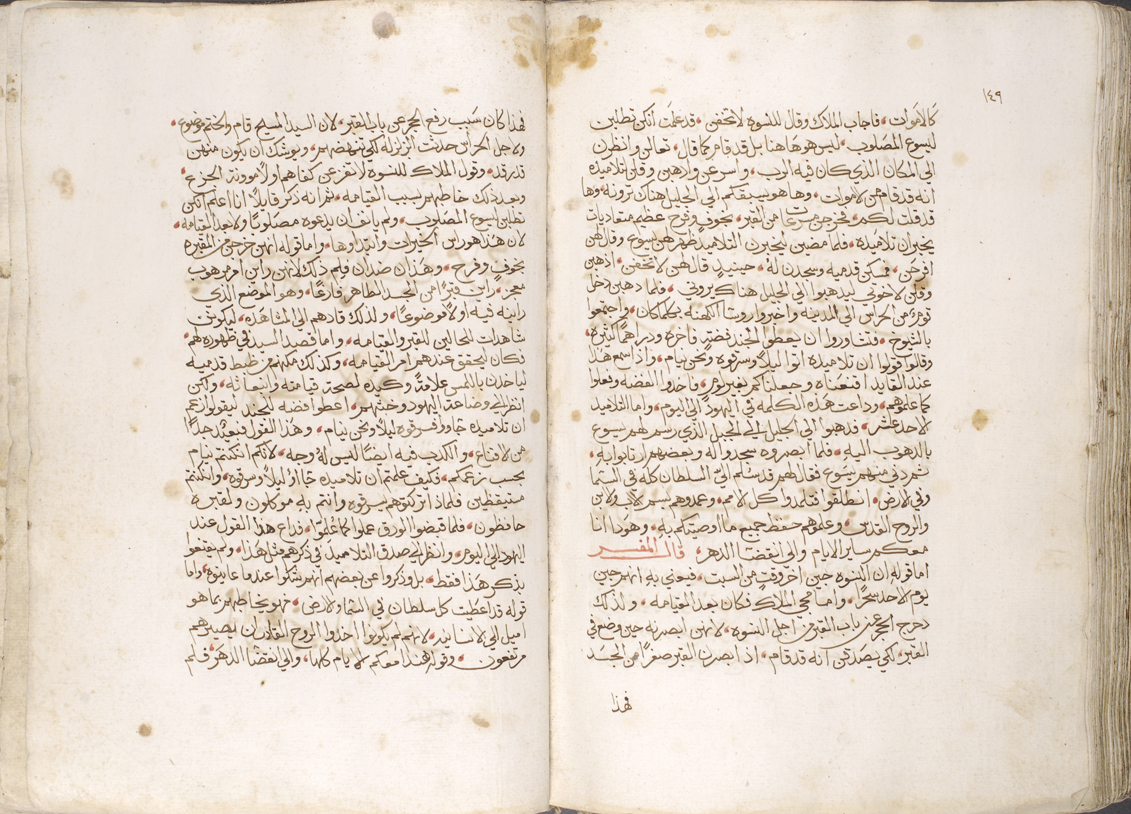 ١٤٩
كالاموات، فاجاب الملاك وقال للنسوه لا تخفن، قد علمت انكن تطلبن
ليسوع المصلوب، ليس هو هاهنا بل قد قام كما قال، تعالى وانظرن
الى المكان الذى كان فيه الرب، واسرعن واذهبن وقلن لتلاميذه
انه قد قام من الاموات، وها هو يسبقكم الى الجليل هناك ترونه، وها
قد قلت لكم، فخرجن مسرعات من القبر، بخوف وفرح عظيم متعاديات
يخبران تلاميذه، فلما مضين ليخبرن التلاميذ ظهر لهن يسوع وقال لهن
افرحن، فمسكن قدميه وسجدن له، حينيذ قال لهن لا تخفن، اذهبن
وقلن لاخوتى ليذهبوا الى الجليل هناك يرونى، فلما ذهبن دخل
قوم من الحراس الى المدينه واخبروا روسا الكهنه بكلما كان، واجتمعوا
بالشيوخ، فتشاوروا ان يعطوا الجند فضه فاخره ودراهما كثيره
وقالوا قولوا ان تلاميذه اتوا ليلا وسرقوه ونحن نيام، واذا سمع هذا
عند القايد اقنعناه وجعلناكم بغير لوم، فاخذوا الفضه وفعلوا
كما علموهم، وذاعت هذه الكلمه فى اليهود الى اليوم، واما التلاميذ
الاحد عشر، فذهبوا الى الجليل الى الجبل الذى رسم لهم يسوع
بالذهوب اليه، فلما ابصروه سجدوا له وبعضهم ارتابوا به،
ثم دنى منهم يسوع فقال لهم قد سلم الىّ السلطان كله فى السما
وفى الارض، انطلقوا فتلمذوا كل الامم، وعمدوهم بسم الاب والابن
والروح القدس، وعلموهم حفظ جميع ما اوصيتكم به، وهوذا انا
معكم ساير الايام والى انقضا الدهر، قال المفسر
اما قوله ان النسوه جين اخر وقت من السبت، فيعنى به انهن جين
يوم الاحد سحرا، واما مجى الملاك فكان بعد القيامه، ولذلك
دحرج الحجر عن باب القبر من اجل النسوه، لانهن ابصرنه حين وضع فى
القبر، لكى يصدقن انه قد قام، اذ ابصرن القبر صفرا من الجسد
فهذا
فهذا كان سبب رفع الحجر عن باب القبر، لان السيد المسيح قام والختم موضوع،
ولاجل الحراس حدثت الزلزله لكى تنهضهم، ويوشك ان يكون منهن
قد رقد، وقول الملاك للنسوه لا تفزعن كفاهم ولا مودنذ الجزع،
وبعد ذلك خاطبهم بسبب القيامه، ثم انه ذكر قايلا انا اعلم انكن
تطلبن ليسوع المصلوب، ولم يانف ان يدعوه مصلوبا ولا بعد القيامه،
لان هذا هو راس الخيرات وابتداوها، واما قوله انهن خرجن من المقبره
بخوف وفرح، وهذان ضدان فلم ذلك لانهن راين امر مرهوب
معجز، راين قبرا من الجسد الطاهر فارغا، وهو الموضع الذى
راينه فيه اولا موضوعا، ولذلك قادهم الى المشاهده، ليكونن
شاهدات للحالين للقبر والقيامه، واما قصد السيد فى ظهوره لهم
فكان ليحقق عندهم امر القيامه، وكذلك مكنهم من ضبط قدميه
لياخذن باللمس علامة وكيده لصحت قيامته وانبعاثه، ولكن
انظر الى وضاعة اليهود وخبثهم، اعطوا فضه للجند ليقولوا نعم
ان تلاميذه جاوا فسرقوه ليلا ونحن نيام، وهذا القول فبعيد جدا
من الاقناع، والكذب فيه ايضا ليس له وجه، لانكم ان كنتم نيام
بحسب زعمكم، فكيف علمتم ان تلاميذه جاوا ليلا وسرقوه، وان كنتم
مستيقظين فلماذا تركتموهم يسرقوه وانتم به موكلون ولقبره
حافظون، فلما قبضوا الورق عملوا كما علموا، فذاع هذا القول عند
اليهود الى اليوم، وانظر الى صدق التلاميذ فى ذكرهم مثل هذا، ولم يقنعوا
بذكر هذا فقط، بل وذكروا عن بعضهم انهم شكوا عندما عاينوه، واما
قوله قد اعطيت كل سلطان فى السما والارض، فهو يخاطبهم بما هو
اميل الى الانسانيه، لانهم لم يكونوا اخذوا الروح القادر ان يصيرهم
مرتفعون، وقوله هانذا معكم الايام كلها، والى انقضا الدهر، فلم